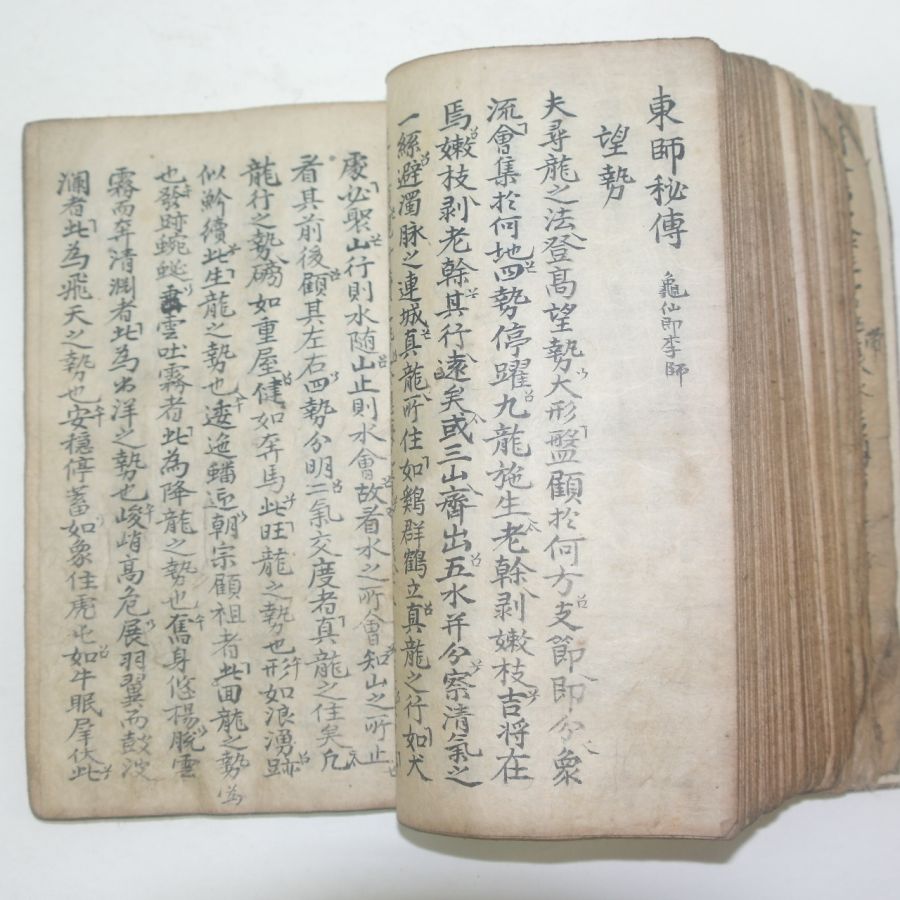 東師秘傳 龜仙即李師
望勢
夫尋龍之法登高望勢大形盤顧於何方支節即分象
流會集於何地四勢停躍九龍施生老幹剥嫩枝吉将在
焉嫩枝剥老幹其行遠矣或三山齊出五水并分察清氣之
一絲避濁脉之連城真龍所住如鷄群鶴立真龍之行如犬
處必聚山行則水随山止則水會故看水之所會知山之所止
者其前後顧其左右四勢分明二氣交度者真龍之住矣凡
龍行之勢磅如重屋健如奔馬此旺龍之勢也形如浪湧跡
似斷續此生龍之勢也逶迤蟠逆朝宗顧祖者此回龍之勢
也發跡蜿蜒 雲吐霧者此為降龍之勢也奮身悠揚脫雲
霧而奔清淵者此為出洋之勢也峻峭高危展羽翼而鼓波
瀾者此為飛天之勢也安穩停蓄如象住虎屯如牛眠犀伏此